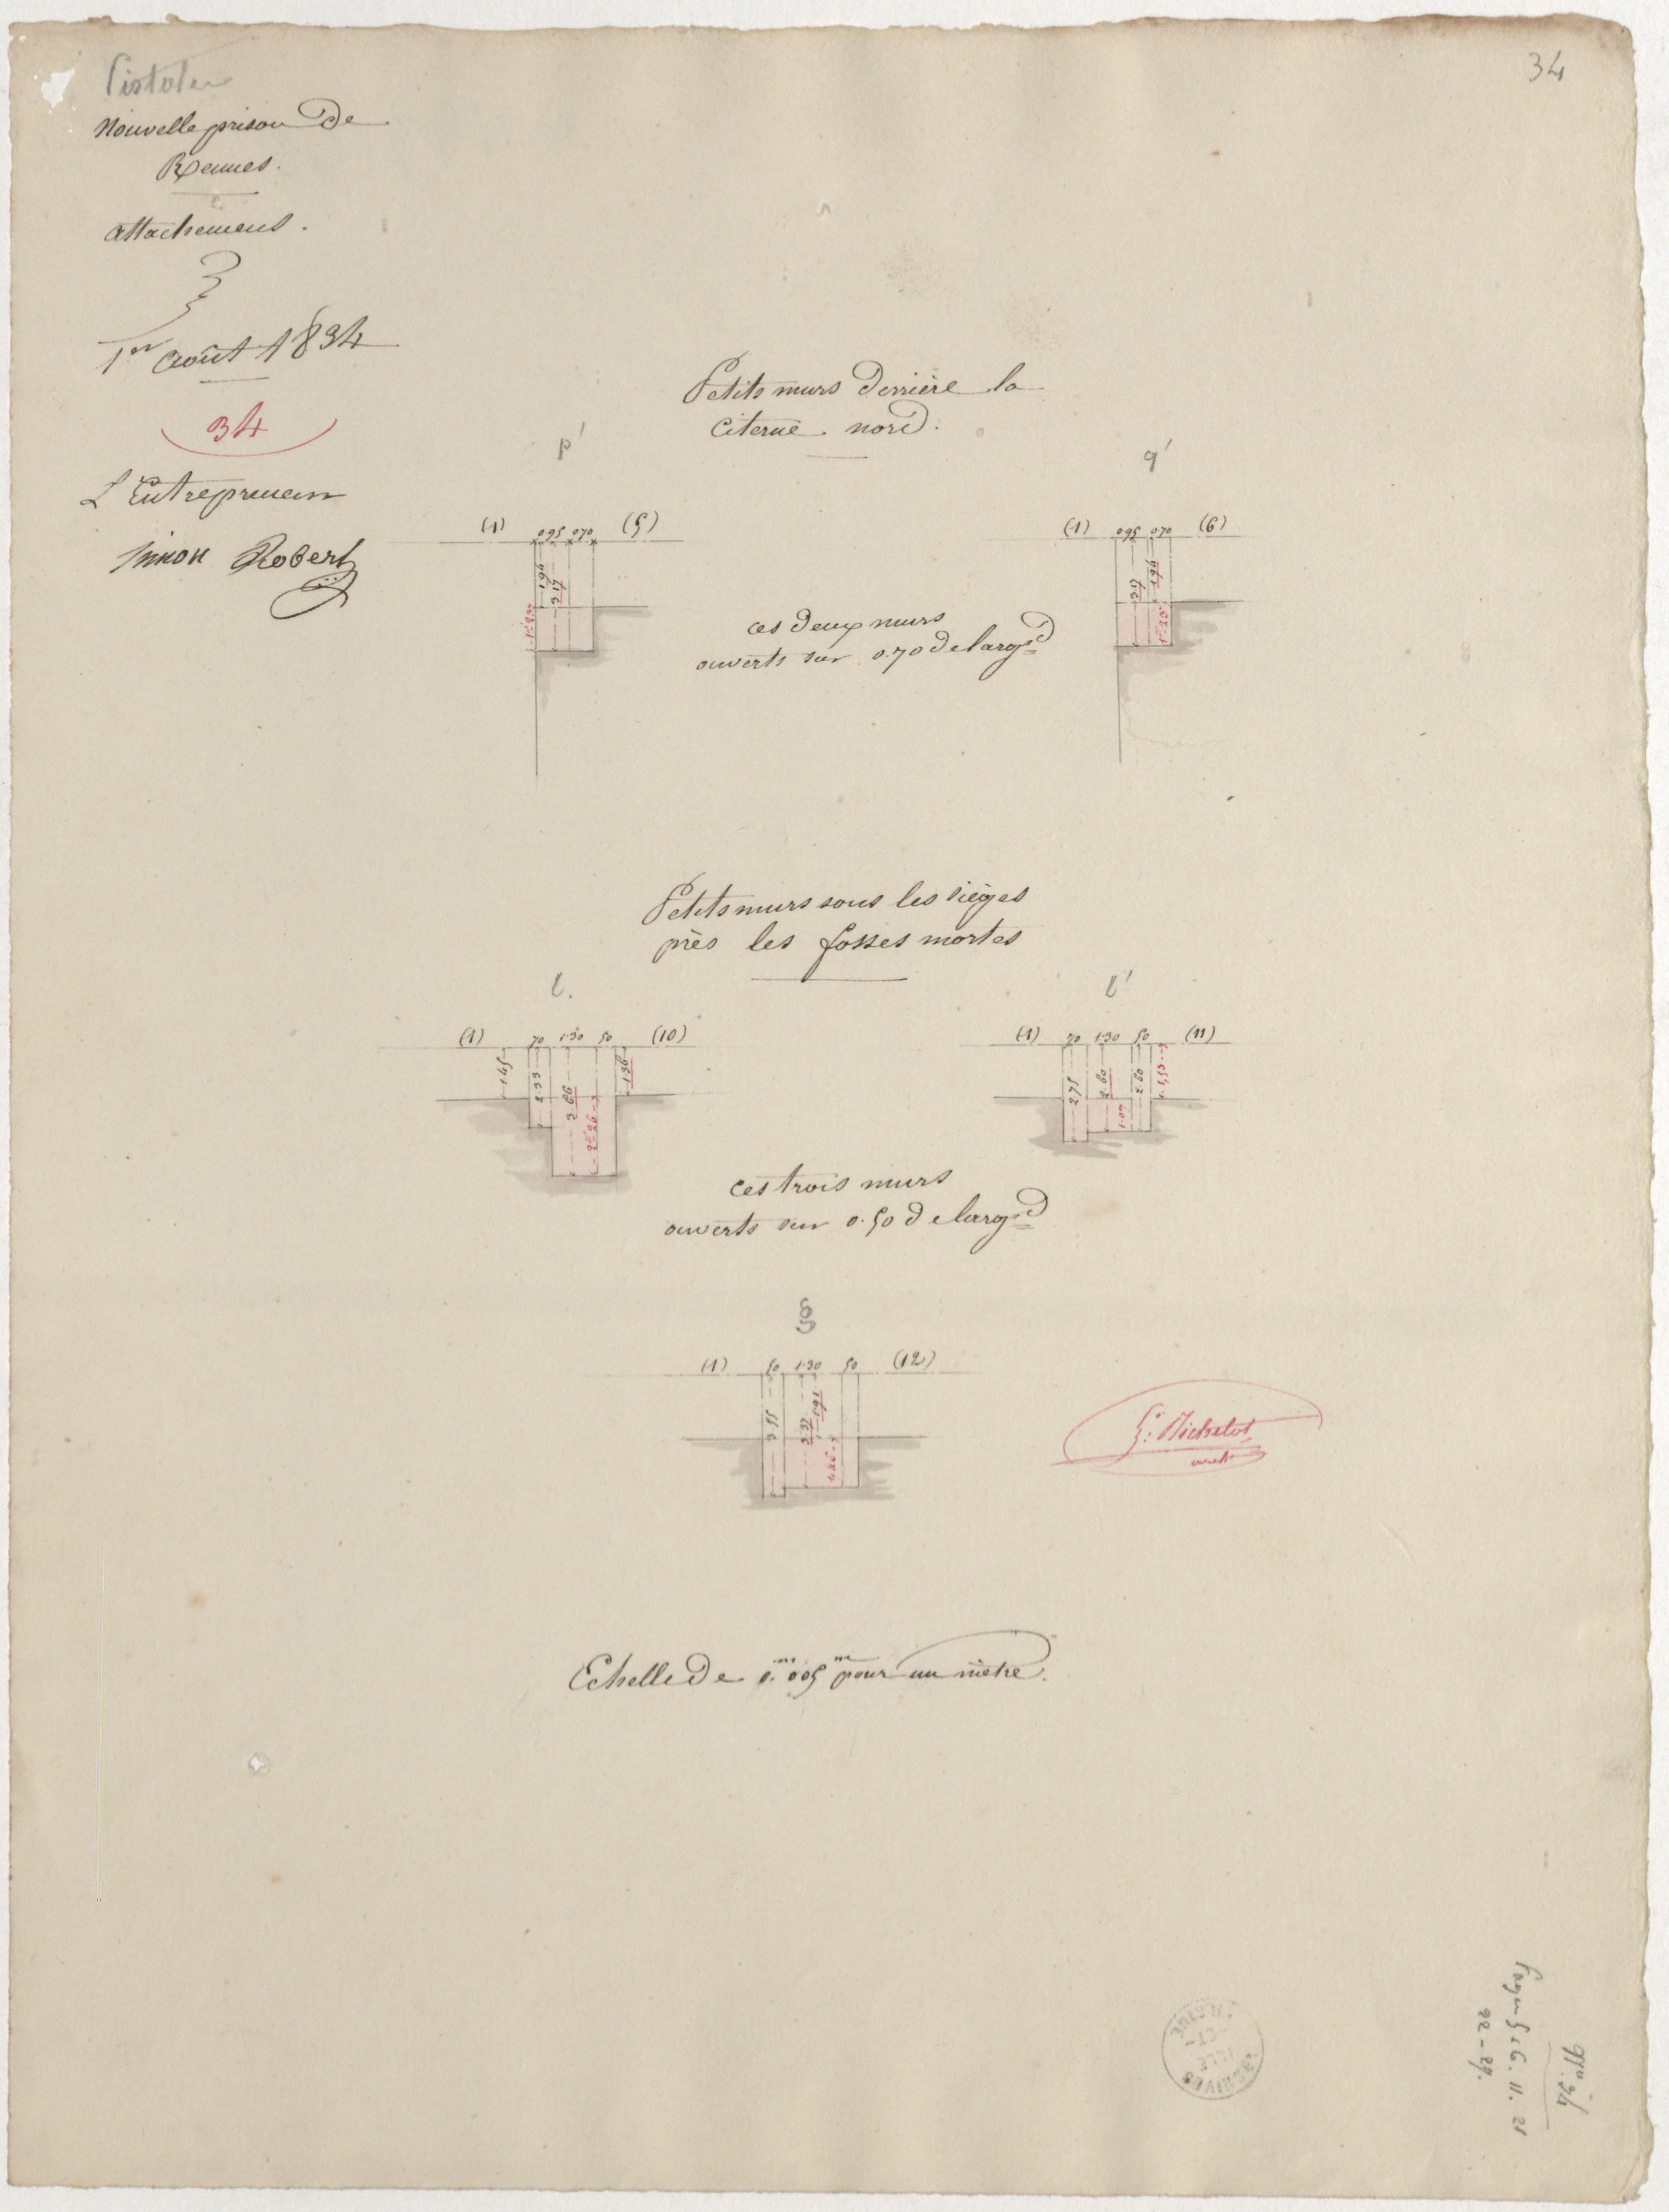 34
Pistoles
Nouvelle prison De
Rennes.
attachement.
1er août 1834
34
L'Entrepreneur
Simon Robert
Petits murs Derrière la
Citerne nord.
p'
(1) 0.95 0.70 (5)
1.94
3.17
q'
(1) 0.95 0.70 (6)
3.17
1.94
1.23
ces deux murs
ouverts sur 0.70 de largr
Petits murs sous les sièges
près les fosses mortes
l.
(1) 70 1.30 50 (10)
1.45
2.33
3.66
1.36
l'
(1) 70 1.30 50 (11)
2.75
2.60
2.60
1.53
1.07
ces trois murs
ouverts sur 0.50 de largr
(1) 50 1.30 50 (12)
3.55
3.37
1.91
1.46
G: Richelot
archte
Echelle De 0.m005m pour un mètre.
No. 34
22 - 29.
ARCHIVES
ILLE
-ET-
VILAINE